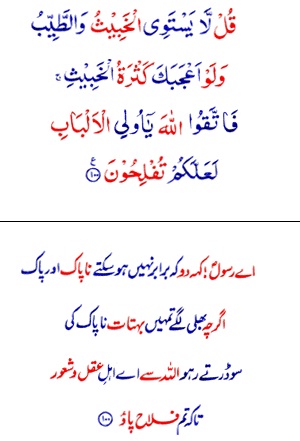 قُلْ لَّا يَسْتَوِى الْخَبِيْثُ وَالطَّيِّبُ
وَلَوْ اَعْجَبَكَ كَثْرَةُ الْخَبِيْثِ ۚ
فَاتَّقُوا اللهَ يٰۤاُولِى الْاَلْبَابِ
لَعَلَّكُمْ تُفْلِحُوْنَ ﴿١٠٠﴾ ع
اے رسولؐ! کہہ دو کہ برابر نہیں ہو سکتے ناپاک اور پاک
اگرچہ بھلی لگے تمہیں بہتات ناپاک کی
سو ڈرتے رہو اللہ سے اے اہلِ عقل و شعور
تاکہ تم فلاح پاؤ ﴿۱۰۰﴾